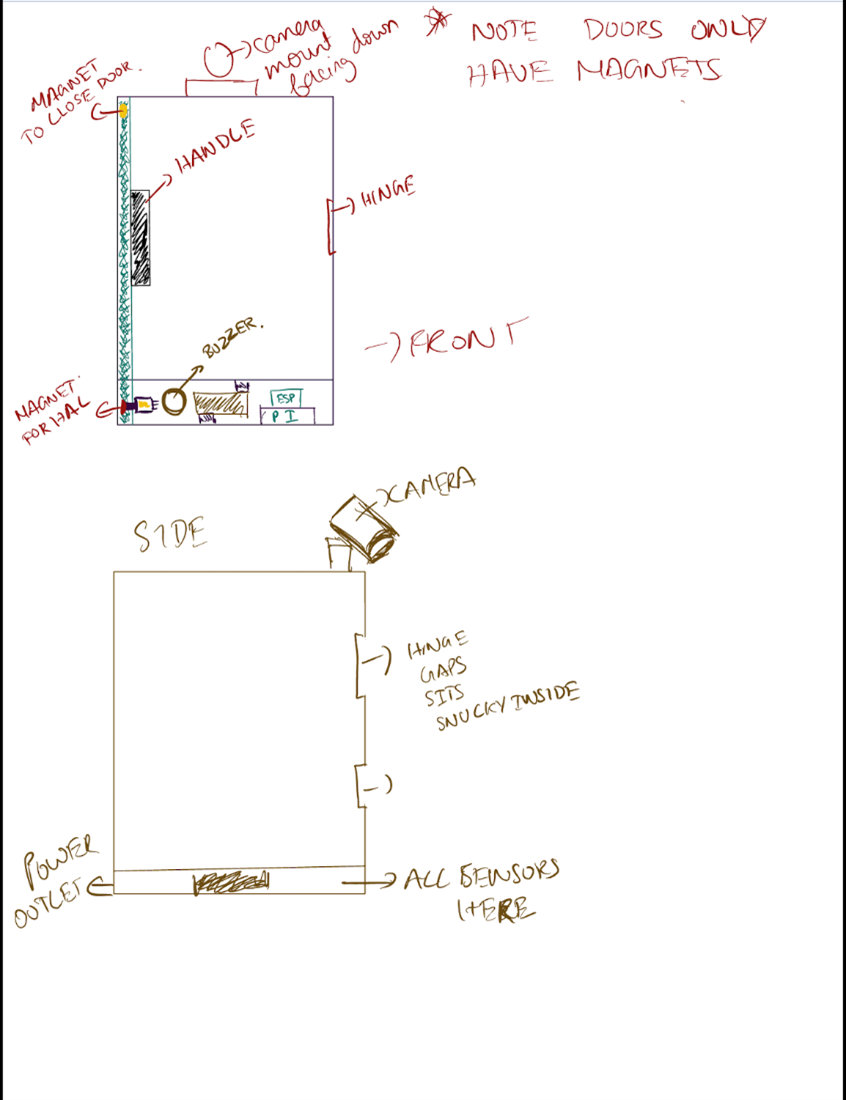 camera
mount down
facing
* NOTE DOORS ONLY
HAVE MAGNETS
MAGNET
TO CLOSE DOOR.
HANDLE
HINGE
BUZZER.
FRONT
MAGNET
FOR HAL
ESP
PI
SIDE
CAMERA
HINGE
GAPS
SITS
SNUCKY INSIDE
POWER
OUTLET
ALL SENSORS
HERE